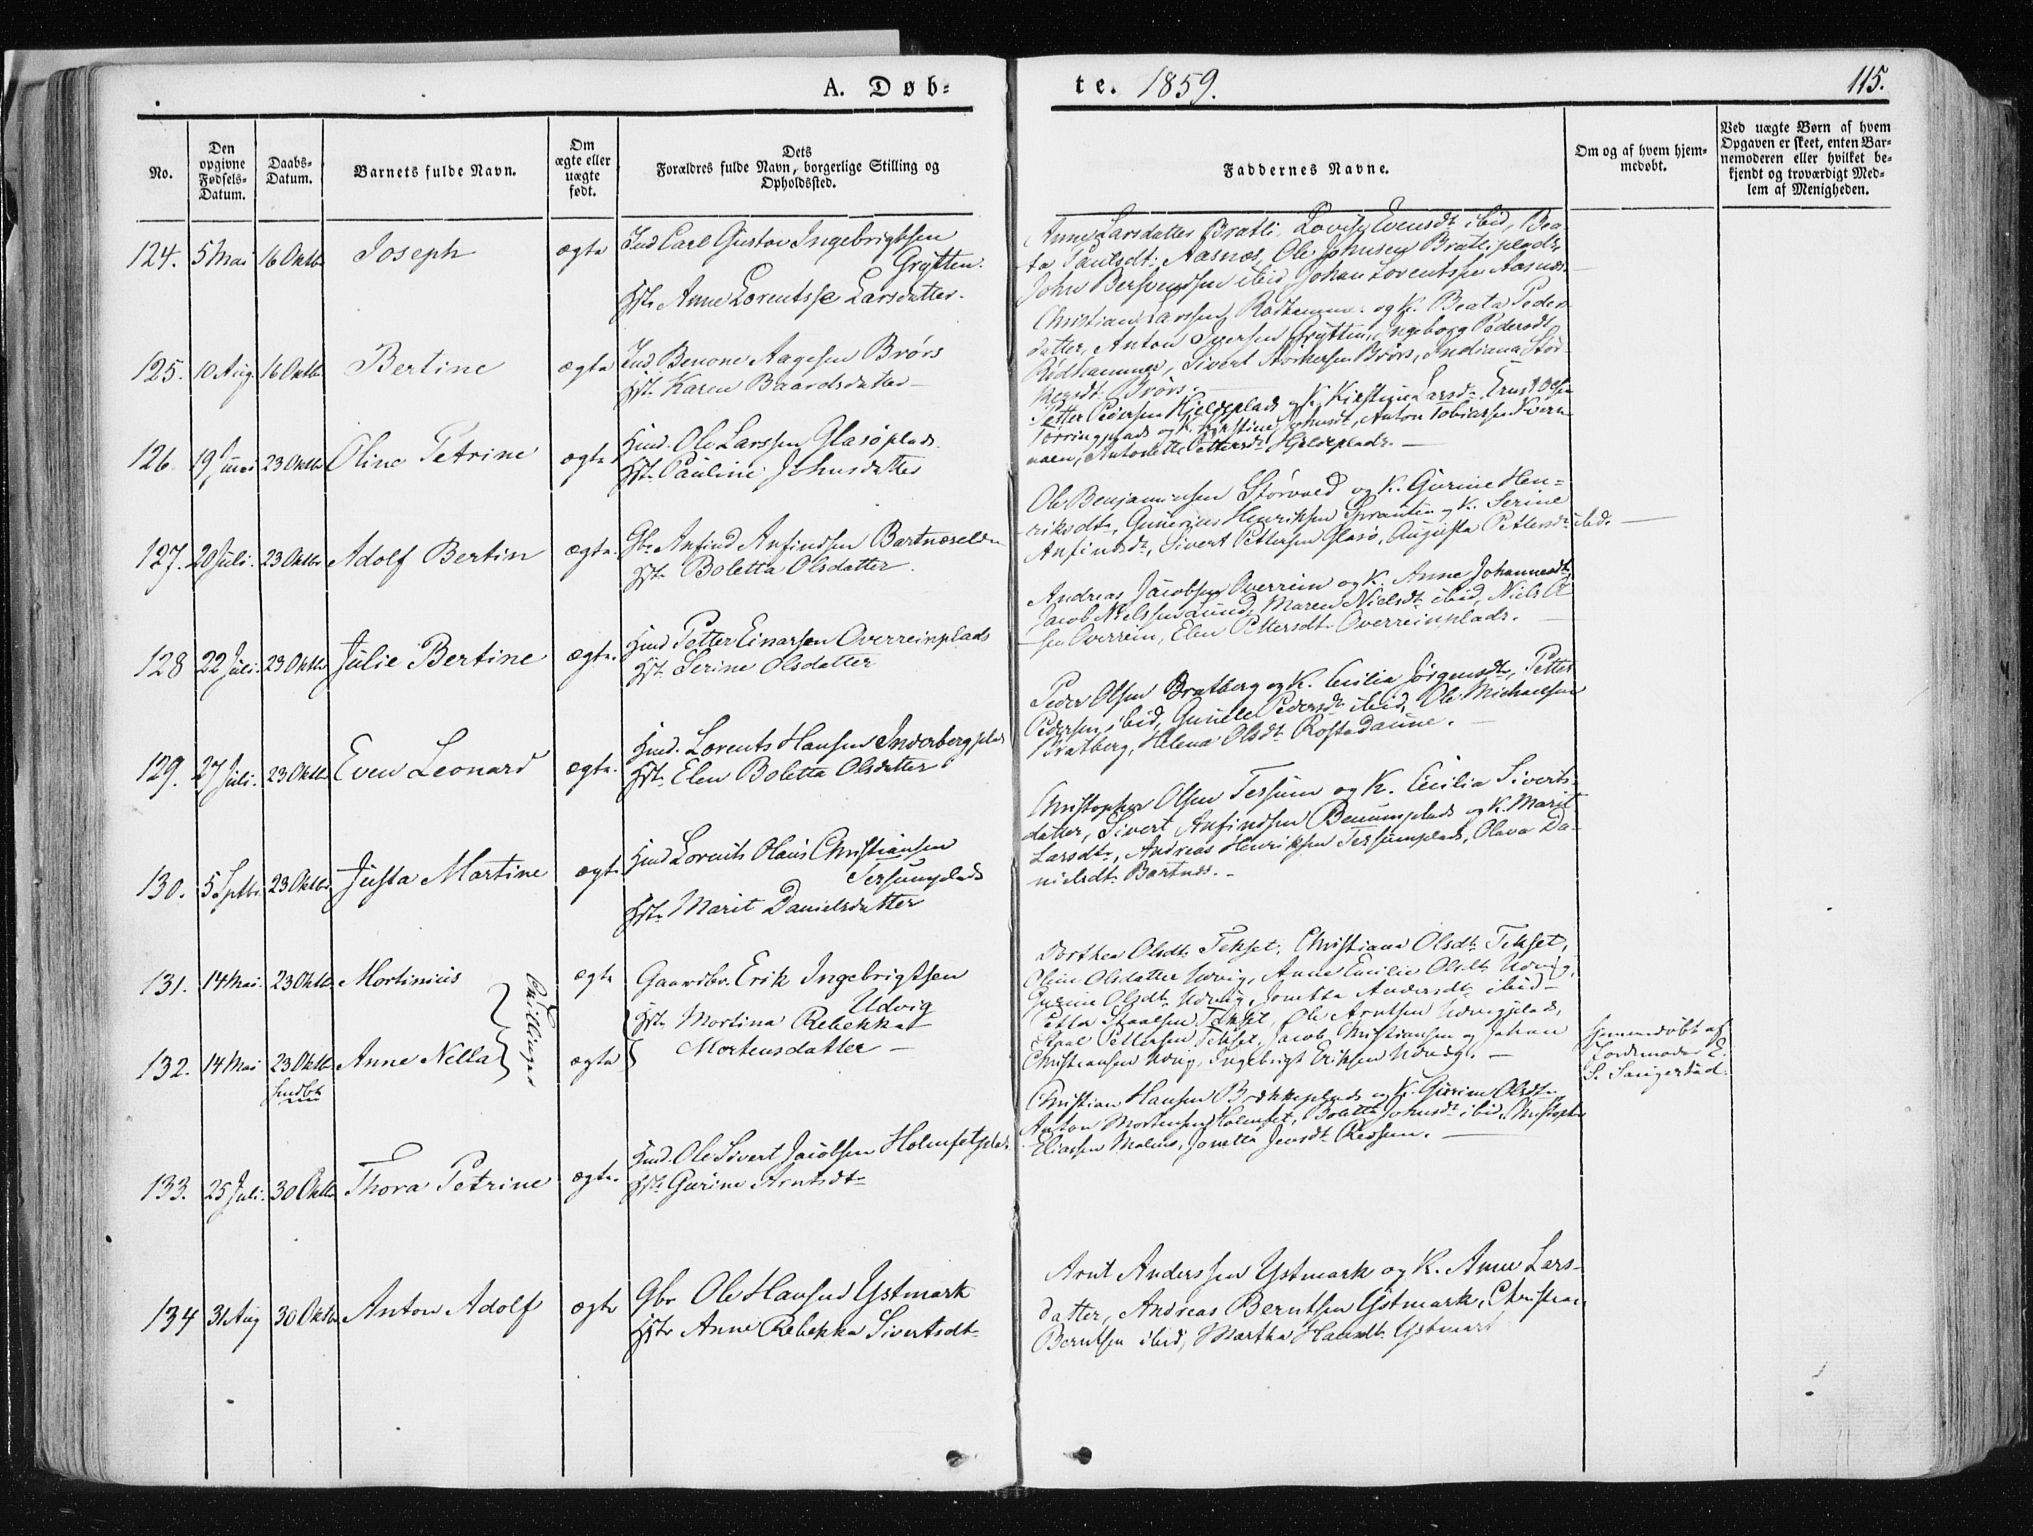 A. Døb-
te. 1859.
115.
No.
Den opgivne Fødsels-Datum.
Daabs-Datum.
Barnets fulde Navn.
Om ægte eller uægte født.
Dets Forældres fulde Navn, borgerlige Stilling og Opholdssted.
Faddernes Navne.
Om og af hvem hjem-medøbt.
Ved uægte Børn af hvem Opgaven er skeet, enten Bar-nemoderen eller hvilket be-kjendt og troværdigt Med-lem af Menigheden.
124. 5 Mai 16 Oktbr Joseph ægte Ind Carl Gustav Ingebrigtsen
Grytten.
Hst. Anne Lorentsse Larsdatter.
Anne Larsdatter Bratli, Lovise Evensdt. ibid, Bea-
ta Paulsdt. Aasnæs, Ole Johnsen Bratliplads,
John Bersvendsen ibid Johan Lorentsen Aasnæs
125. 10 Aug. 16 Oktbr Bertine ægte Ind. Benone Aagesen Brørs
Hst. Karen Baardsdatter
Christian Larssen Rødhammer og K. Beata Peders-
datter, Anton Iversen Grytten, Ingeborg Pedersdt.
Rødhammer, Sivert Brørs, Indiana
Brørs.
126. 19 Juni 23 Oktbr Oline Petrine ægte Hmd. Ole Larssen Glasøplads
Hst. Pauline Johnsdatter
Petter Pedersen Hjeldeplads og K. Kirstine Larsd. Ernst Olsen
og K. Kirstine Johnsdt, Anton Tobiassen Kvern-
moen, Antonette Pettersdt. Hjeldeplads.
127. 20 Juli. 23 Oktbr Adolf Bertin ægte. Gbr. Anfind Anfindsen Bartnæs
Hst. Boletta Olsdatter.
Ole Benjaminsen Størvold og K. Gurine Hen-
riksdt., Gunerius Henriksen og K. Serine
Anfindsdt, Sivert Pettersen Glasø, Augusta Pettersdt. ibid.
128 22 Juli. 23 Oktbr Julie Bertine ægte. Hmd Petter Einarsen Overreinplads
Hst. Serine Olsdatter
Andreas Jacobsen Overrein og K. Anne Johannesdt.
Jacob Nielssen Lund, Maren Nielsdt. ibid, Niels Ol-
sen Overrein, Elen Pettersdt. Overreinplads.
129. 27 Juli. 23 Oktbr Even Leonard ægte. Hmd. Lorents Hansen Inderbergplads
Hst. Elen Boletta Olsdatter
Peder Olsen Bratberg og K. Cecilia Jørgensdt., Petter
Pedersen ibid, Gunelle Pedersdt. ibid, Ole Michaelsen
Bratberg, Helena Olsdt. Rostadaune.
130. 5 Septbr 23 Oktbr Justa Martine ægte Hmd Lorents Olaus Christiansen
Tessumplads
Hst. Marit Danielsdatter
Christopher Olsen Tessum og K. Cecilia Siverts-
datter, Sivert Anfindsen Benumplads og K. Marit
Larsdt., Andreas Henriksen Tessumplads, Olava Da-
nielsdt. Bartnæs.
131. 14 Mai. 23 Oktbr Mortinius ægte Gaardbr. Erik Ingebrigtsen
Udvig
Tvillinger
Hst. Mortina Rebekka
Mortensdatter
132. 14 Mai 23 Oktbr Anne Nella ægte
Dorthea Olsdt. Tekset, Christiana Olsdt. Tekset,
Oline Olsdatter Udvig, Anne Emilie Olsdt. Udvig,
Gurine Olsdt. Udvig, Jonetta Andersdt. ibid
Petter Staalsen Tekset, Ole Arntsen Udvigplads,
Staal Pettersen Tekset, Jacob Christiansen og Johan
Christiansen Udvig, Ingebrigt Eriksen Udvig.
hjemmedøbt af
Jordemoder E.
S. Saugestad.
133. 25 Juli. 30 Oktbr Thora Petrine ægte. Hmd. Ole Sivert Jacobsen Holmsetplads
Hst. Gurine Arntsdt.
Christian Hansen Brækkeplads og K. Gurine Olsdt.
Anton Mortensen Holmset, Boletta Johnsdt. ibid, Christopher
Eliassen Malnes, Jonetta Jensdt. Røssum.
134 31 Aug 30 Oktbr Anton Adolf ægte Gbr Ole Hansen Ystmark
Hst. Anne Rebekka Sivertsdt.
Arnt Anderssen Ystmark og K. Anne Lars-
datter, Andreas Berntsen Ystmark, Christian
Berntsen ibid, Martha Hansdt. Ystmark